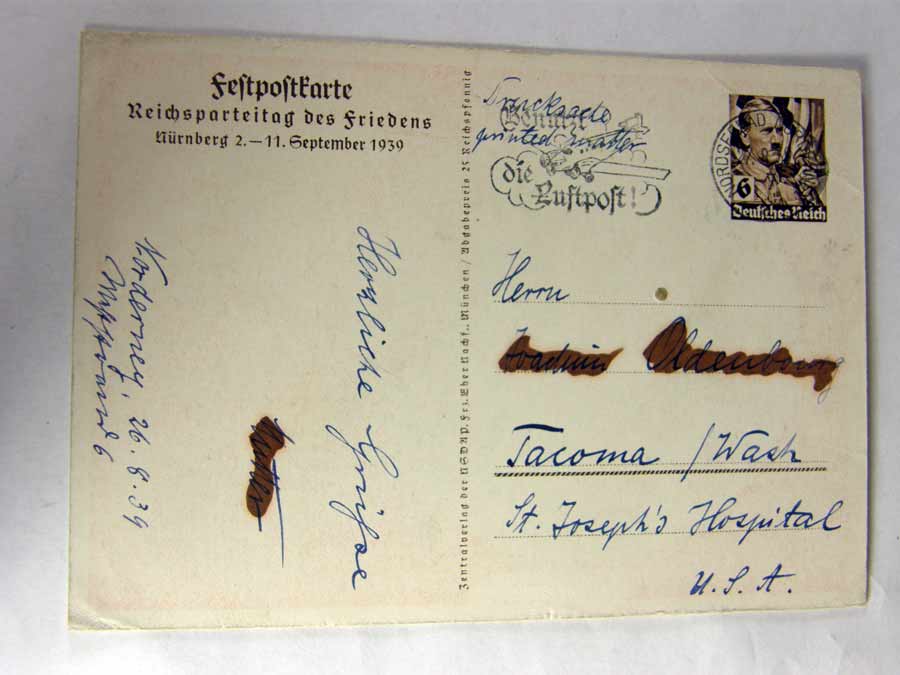 Festpostkarte
Reichsparteitag des Friedens
Nürnberg 2.—11. September 1939
Norderney, 26. 8. 39
Herzliche Grüße
Mutter
Zentralverlag der NSDAP. Frz. Eher Nachf., München / Abgabepreis 25 Reichspfennig
Drucksache
printed matter
Benutzt
die
Luftpost!
NORDSEEBAD
6
Deutsches Reich
Herrn
Joachim Oldenburg
Tacoma / Wash
St. Joseph's Hospital
U. S. A.